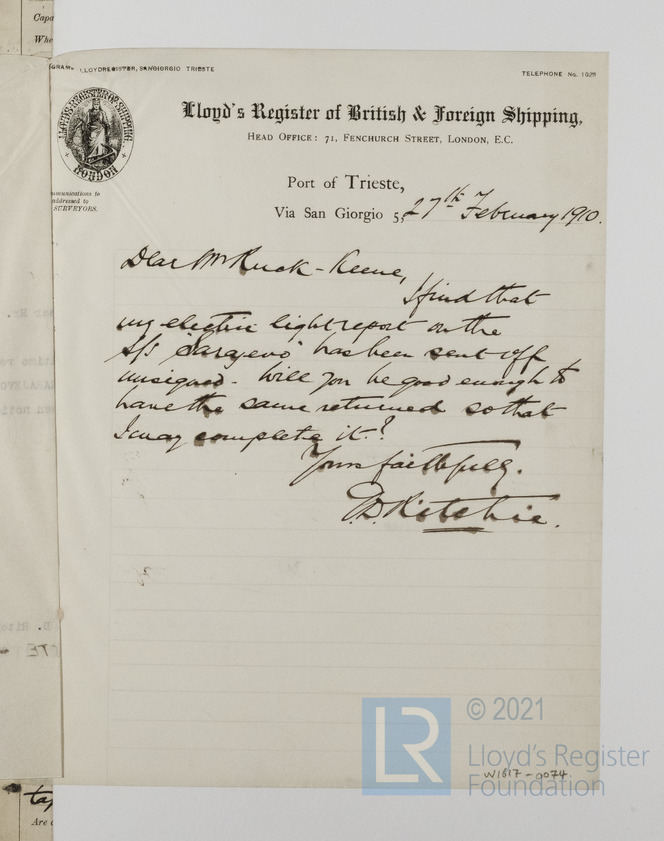 Capa
Whe
GRAMS, LLOYDREGISTER, SANGIORGIO TRIESTE
TELEPHONE No. 1028
Lloyd's Register of British & Foreign Shipping,
HEAD OFFICE: 71, FENCHURCH STREET, LONDON, E.C.
LONDON
mmunications to
addressed to
SURVEYORS.
Port of Trieste,
Via San Giorgio 5, 27th February 1910.
Dear Mr Ruck-Keene,
I find that
my electric light report on the
S/S "Sarajevo" has been sent off
unsigned. Will you be good enough to
have the same returned so that
I may complete it?
Yours faithfully.
D. Ritchie.
© 2021
LR
Lloyd's Register
Foundation
W1817-0074
Are